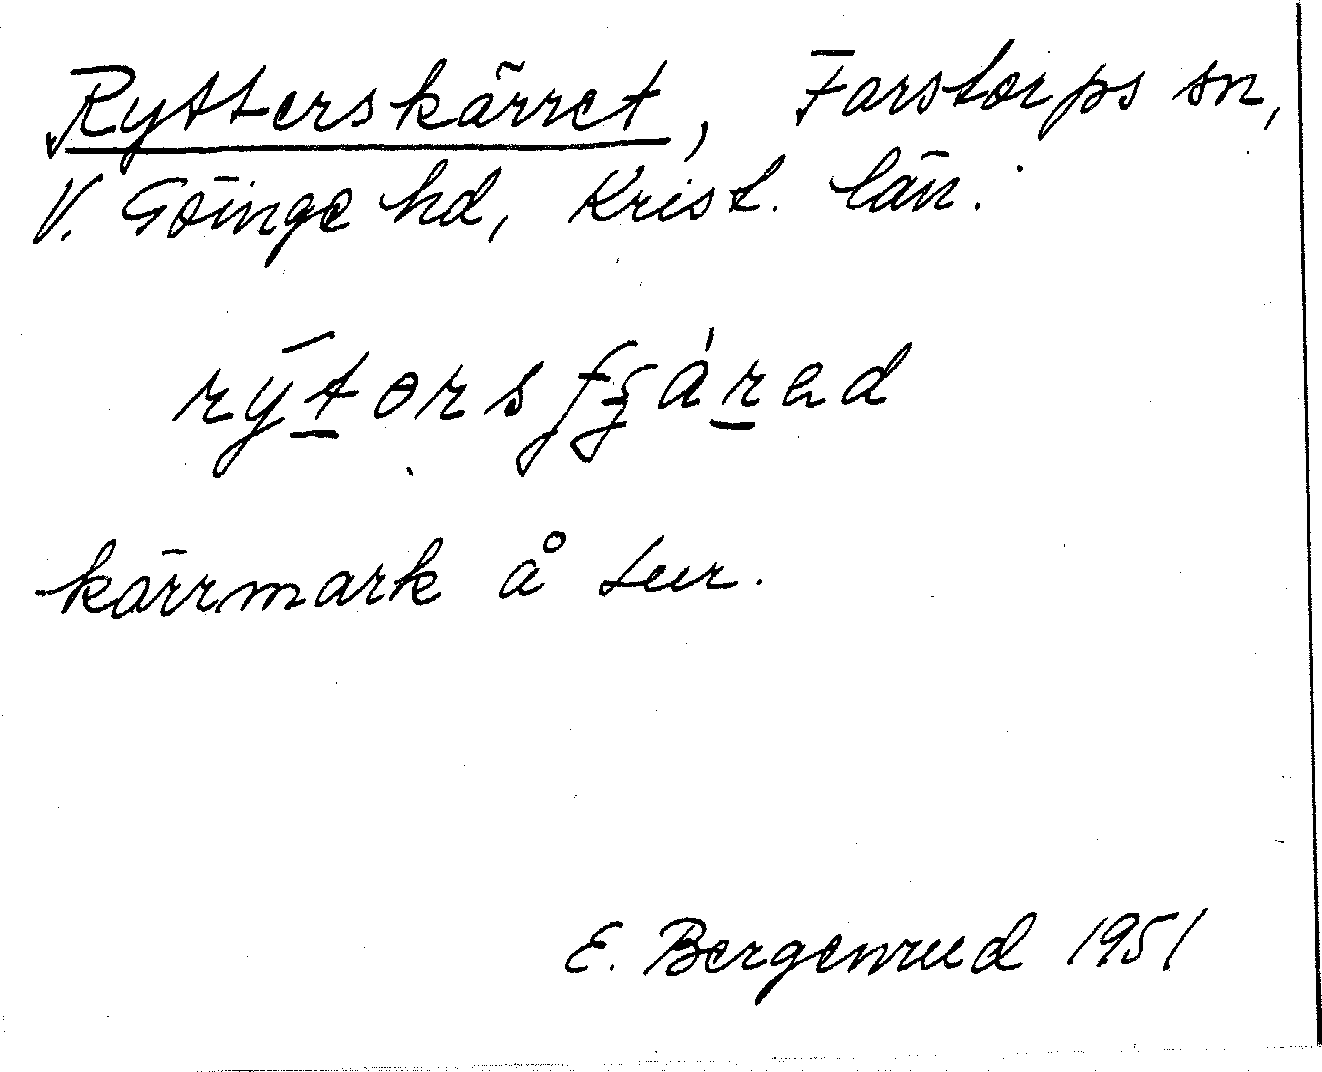 Rytterskärret, Farstorps sn,
V. Göinge hd, Krist. län.
kärrmark å tur.
E. Bergenrud 1951